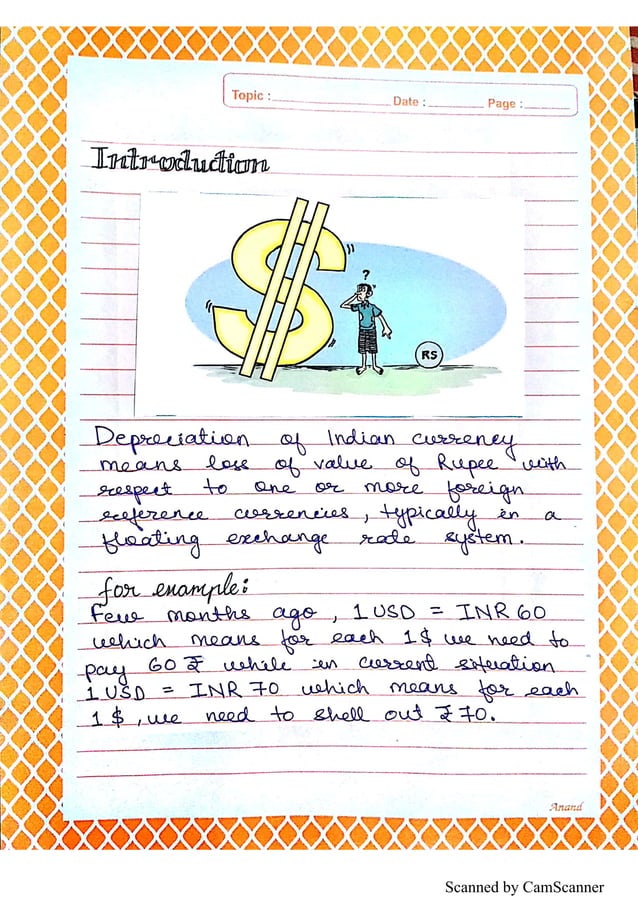 Topic : Date : Page :
Introduction
$
?
RS
Depreciation of Indian currency
means loss of value of Rupee with
respect to one or more foreign
reference currencies, typically in a
floating exchange rate system.
for example:
Few months ago, 1 USD = INR 60
which means for each 1$ we need to
pay 60 ₹ while in current situation
1 USD = INR 70 which means for each
1 $, we need to shell out ₹ 70.
Anand
Scanned by CamScanner